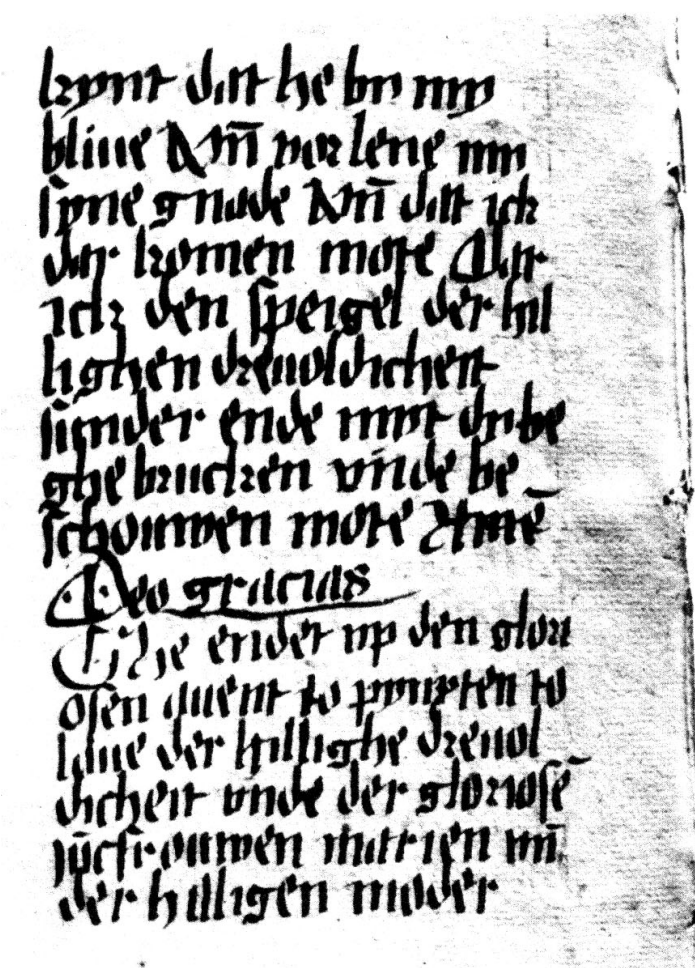 kynt dat he by my
bliue Vm̄ vorlene my
syne gnade Vm̄ dat ick
dar komen mote Dar
ick den speigel der hil
lighen dreuoldicheit
sunder ende myt dy be
ghe brucken vnde be
schouwen mote Amē
Deo gracias
Hye endet vp den glori
osen auent to pynxten to
laue der hillighe dreuol
dicheit vnde der gloriosē
jūcfrouwen marien vn̄
der hilligen moder